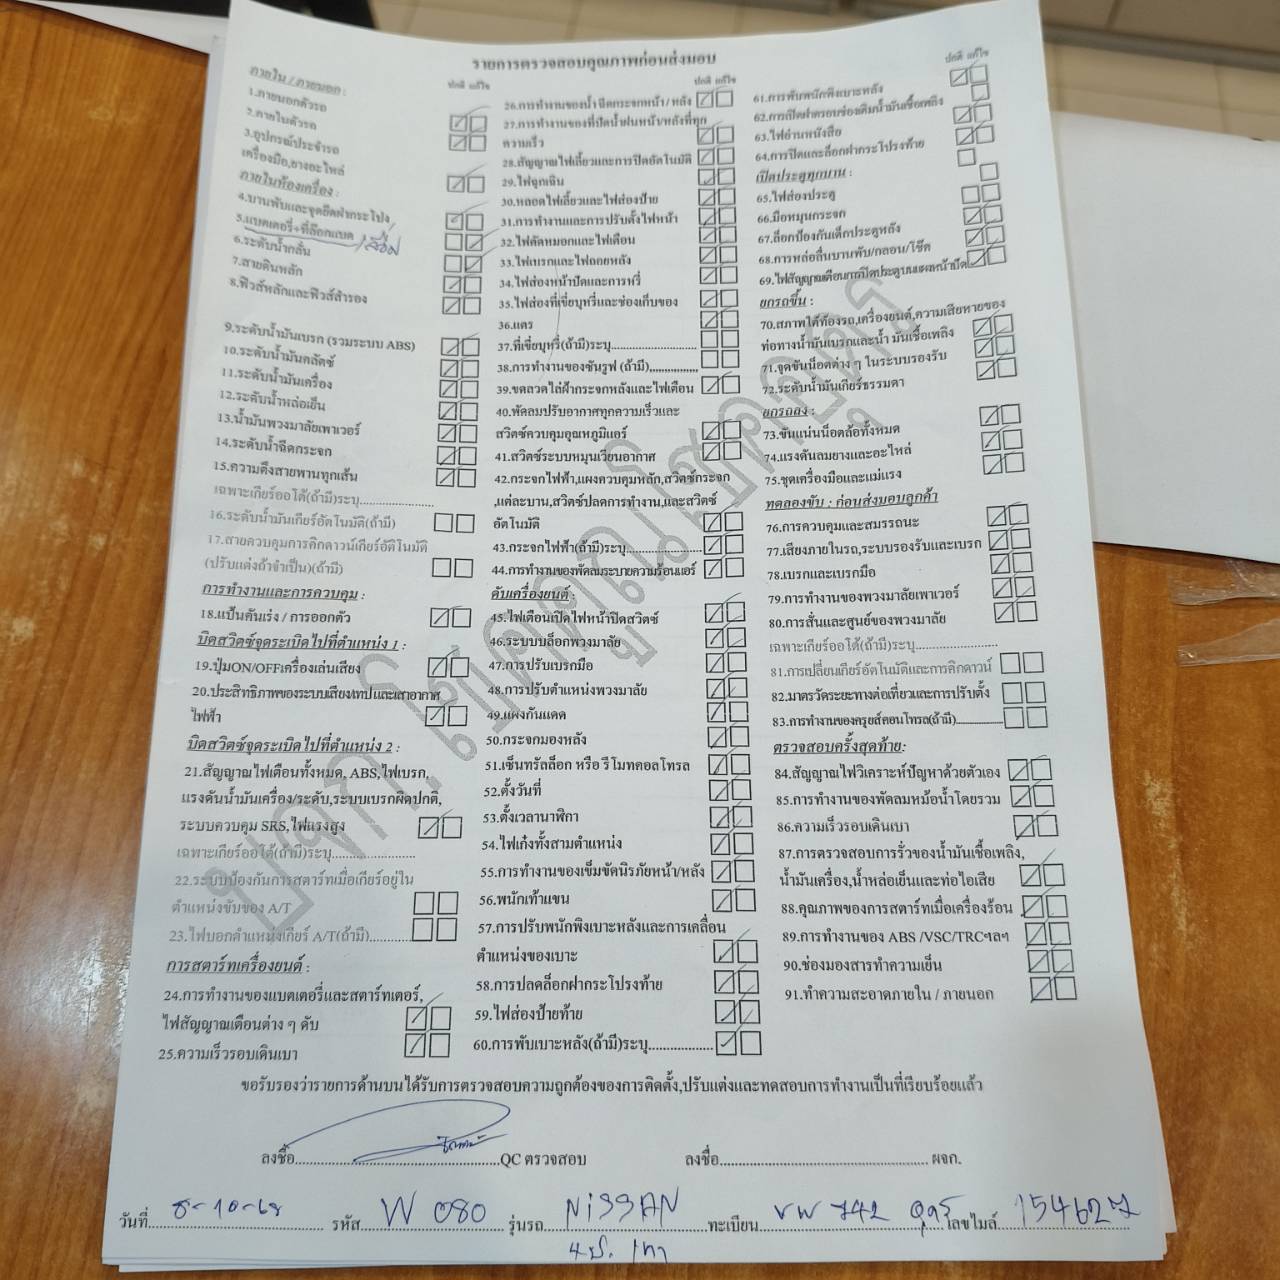 รายการตรวจสอบคุณภาพก่อนส่งมอบ
ปกติ แก้ไข
ภายใน / ภายนอก :
1.ภายนอกตัวรถ
2.ภายในตัวรถ
3.อุปกรณ์ประจำรถ
เครื่องมือ,ยางอะไหล่
ภายในห้องเครื่อง :
4.บานพับและจุดยึดฝากระโปรง
5.แบตเตอรี่+ที่ล๊อกแบต
6.ระดับน้ำกลั่น
7.สายดินหลัก
8.ฟิวส์หลักและฟิวส์สำรอง
9.ระดับน้ำมันเบรก (รวมระบบ ABS)
10.ระดับน้ำมันคลัตช์
11.ระดับน้ำมันเครื่อง
12.ระดับน้ำหล่อเย็น
13.น้ำมันพวงมาลัยเพาเวอร์
14.ระดับน้ำฉีดกระจก
15.ความตึงสายพานทุกเส้น
เฉพาะเกียร์ออโต้(ถ้ามี)ระบุ..................
16.ระดับน้ำมันเกียร์อัตโนมัติ(ถ้ามี)
17.สายควบคุมการคิกดาวน์เกียร์อัติโนมัติ
(ปรับแต่งถ้าจำเป็น)(ถ้ามี)
การทำงานและการควบคุม :
18.แป้นคันเร่ง / การออกตัว
บิดสวิตซ์จุดระเบิดไปที่ตำแหน่ง 1 :
19.ปุ่มON/OFFเครื่องเล่นเสียง
20.ประสิทธิภาพของระบบเสียงเทปและเสาอากาศ
ไฟฟ้า
บิดสวิตซ์จุดระเบิดไปที่ตำแหน่ง 2 :
21.สัญญาณไฟเตือนทั้งหมด, ABS,ไฟเบรก,
แรงดันน้ำมันเครื่อง/ระดับ,ระบบเบรกผิดปกติ,
ระบบควบคุม SRS,ไฟแรงสูง
เฉพาะเกียร์ออโต้(ถ้ามี)ระบุ..................
22.ระบบป้องกันการสตาร์ทเมื่อเกียร์อยู่ใน
ตำแหน่งขับของ A/T
23.ไฟบอกตำแหน่งเกียร์ A/T(ถ้ามี)..........
การสตาร์ทเครื่องยนต์ :
24.การทำงานของแบตเตอรี่และสตาร์ทเตอร์,
ไฟสัญญาณเตือนต่าง ๆ ดับ
25.ความเร็วรอบเดินเบา
ปกติ แก้ไข
26.การทำงานของน้ำฉีดกระจกหน้า/ หลัง
27.การทำงานของที่ปัดน้ำฝนหน้า/หลังที่ทุก
ความเร็ว
28.สัญญาณไฟเลี้ยวและการปิดอัตโนมัติ
29.ไฟฉุกเฉิน
30.หลอดไฟเลี้ยวและไฟส่องป้าย
31.การทำงานและการปรับตั้งไฟหน้า
32.ไฟตัดหมอกและไฟเตือน
33.ไฟเบรกและไฟถอยหลัง
34.ไฟส่องหน้าปัดและการหรี่
35.ไฟส่องที่เขี่ยบุหรี่และช่องเก็บของ
36.แตร
37.ที่เขี่ยบุหรี่(ถ้ามี)ระบุ.....................
38.การทำงานของซันรูฟ (ถ้ามี)...............
39.ขดลวดไล่ฝ้ากระจกหลังและไฟเตือน
40.พัดลมปรับอากาศทุกความเร็วและ
สวิตซ์ควบคุมอุณหภูมิแอร์
41.สวิตซ์ระบบหมุนเวียนอากาศ
42.กระจกไฟฟ้า,แผงควบคุมหลัก,สวิตซ์กระจก
,แต่ละบาน,สวิตซ์ปลดการทำงาน,และสวิตซ์
อัตโนมัติ
43.กระจกไฟฟ้า(ถ้ามี)ระบุ..................
44.การทำงานของพัดลมระบายความร้อนแอร์
ดับเครื่องยนต์ :
45.ไฟเตือนเปิดไฟหน้าปิดสวิตซ์
46.ระบบบล็อกพวงมาลัย
47.การปรับเบรกมือ
48.การปรับตำแหน่งพวงมาลัย
49.แผงกันแดด
50.กระจกมองหลัง
51.เซ็นทรัลล็อก หรือ รีโมทคอลโทรล
52.ตั้งวันที่
53.ตั้งเวลานาฬิกา
54.ไฟเก๋งทั้งสามตำแหน่ง
55.การทำงานของเข็มขัดนิรภัยหน้า/หลัง
56.พนักเท้าแขน
57.การปรับพนักพิงเบาะหลังและการเคลื่อน
ตำแหน่งของเบาะ
58.การปลดล็อกฝากระโปรงท้าย
59.ไฟส่องป้ายท้าย
60.การพับเบาะหลัง(ถ้ามี)ระบุ.................
ปกติ แก้ไข
61.การพับพนักพิงเบาะหลัง
62.การเปิดฝาครอบช่องเติมน้ำมันเชื้อเพลิง
63.ไฟอ่านหนังสือ
64.การปิดและล็อกฝากระโปรงท้าย
เปิดประตูทุกบาน :
65.ไฟส่องประตู
66.มือหมุนกระจก
67.ล็อกป้องกันเด็กประตูหลัง
68.การหล่อลื่นบานพับ/กลอน/โช๊ค
69.ไฟสัญญาณเตือนการปิดประตูบนแผงหน้าปัด
ยกรถขึ้น :
70.สภาพใต้ท้องรถ,เครื่องยนต์,ความเสียหายของ
ท่อทางน้ำมันเบรกและน้ำ มันเชื้อเพลิง
71.จุดขันน็อตต่าง ๆ ในระบบรองรับ
72.ระดับน้ำมันเกียร์ธรรมดา
ยกรถลง :
73.ขันแน่นน็อตล้อทั้งหมด
74.แรงดันลมยางและอะไหล่
75.ชุดเครื่องมือและแม่แรง
ทดลองขับ : ก่อนส่งมอบลูกค้า
76.การควบคุมและสมรรถนะ
77.เสียงภายในรถ,ระบบรองรับและเบรก
78.เบรกและเบรกมือ
79.การทำงานของพวงมาลัยเพาเวอร์
80.การสั่นและศูนย์ของพวงมาลัย
เฉพาะเกียร์ออโต้(ถ้ามี)ระบุ..................
81.การเปลี่ยนเกียร์อัตโนมัติและการคิกดาวน์
82.มาตรวัดระยะทางต่อเที่ยวและการปรับตั้ง
83.การทำงานของครุยส์คอนโทรล(ถ้ามี)...............
ตรวจสอบครั้งสุดท้าย:
84.สัญญาณไฟวิเคราะห์ปัญหาด้วยตัวเอง
85.การทำงานของพัดลมหม้อน้ำโดยรวม
86.ความเร็วรอบเดินเบา
87.การตรวจสอบการรั่วของน้ำมันเชื้อเพลิง,
น้ำมันเครื่อง,น้ำหล่อเย็นและท่อไอเสีย
88.คุณภาพของการสตาร์ทเมื่อเครื่องร้อน
89.การทำงานของ ABS /VSC/TRCฯลฯ
90.ช่องมองสารทำความเย็น
91.ทำความสะอาดภายใน / ภายนอก
ขอรับรองว่ารายการด้านบนได้รับการตรวจสอบความถูกต้องของการติดตั้ง,ปรับแต่งและทดสอบการทำงานเป็นที่เรียบร้อยแล้ว
ลงชื่อ..................................................QC ตรวจสอบ ลงชื่อ.................................................. ผจก.
วันที่ 8-10-68 รหัส W 080 รุ่นรถ NiSSAN ทะเบียน 742 เลขไมล์ 154627
4 ป. เทา